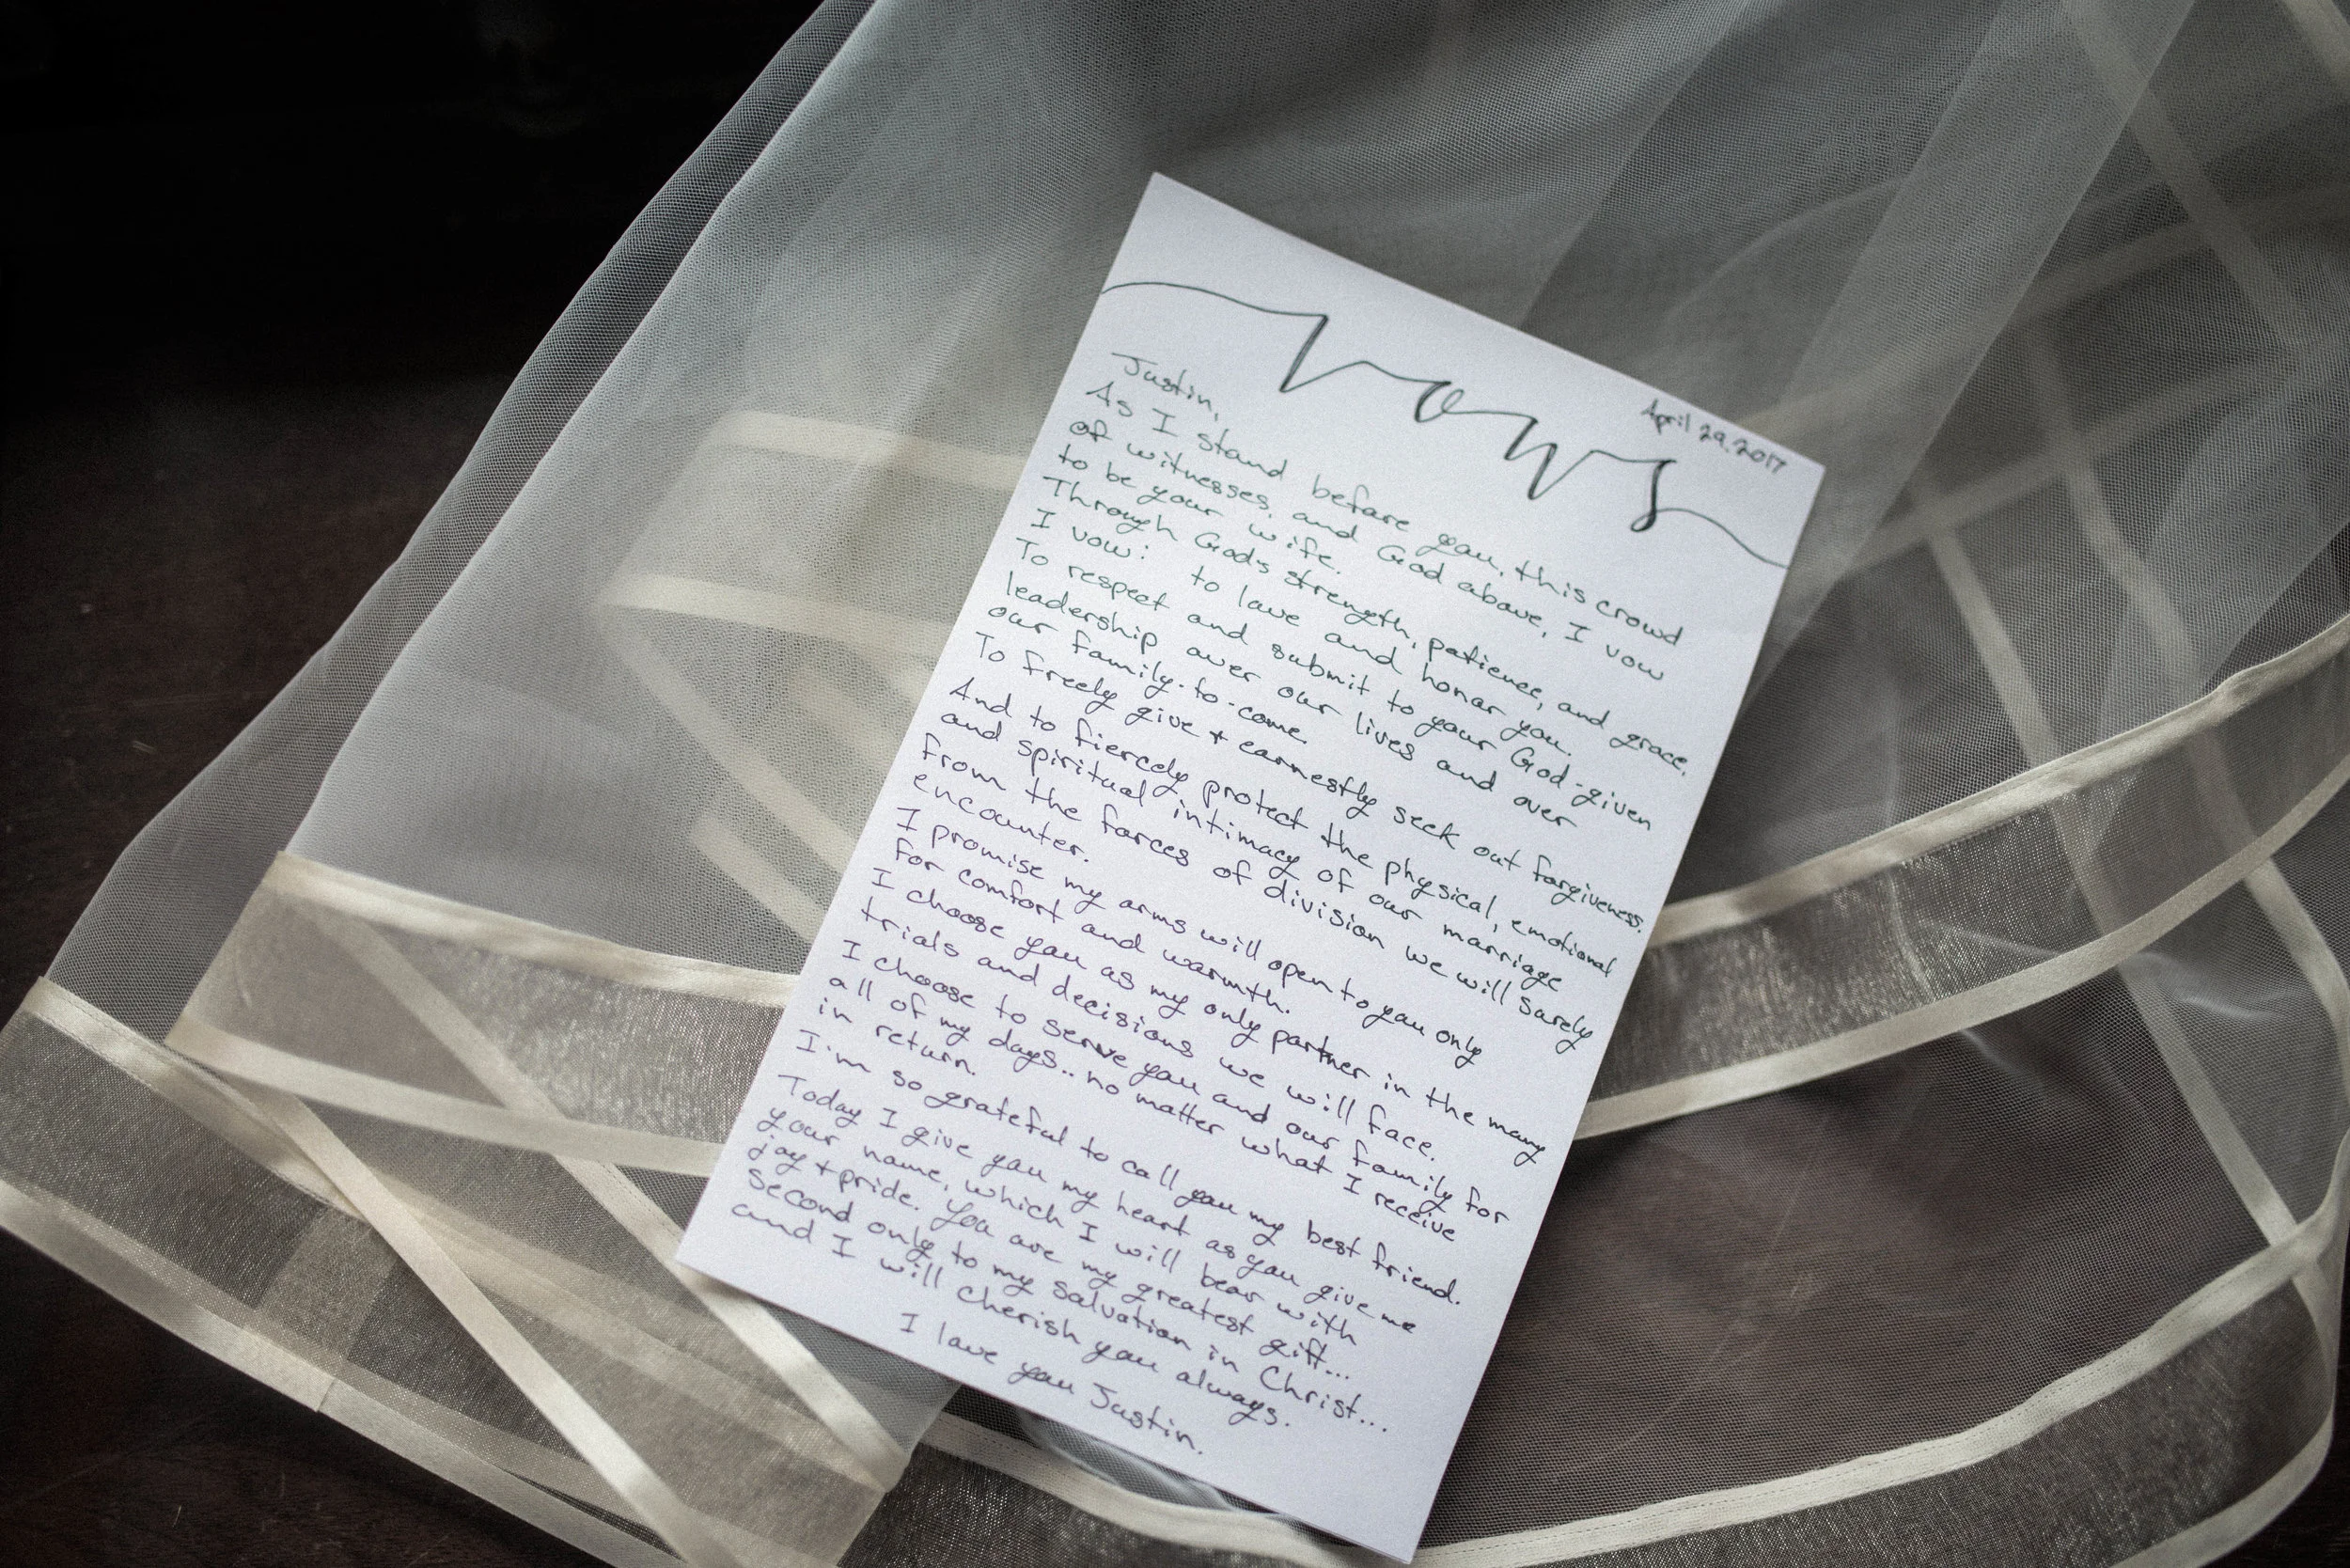 Vows
April 29, 2017
Justin,
As I stand before you, this crowd
of witnesses, and God above, I vow
to be your wife.
Through God's strength, patience, and grace,
I vow: to love and honor you.
To respect and submit to your God-given
leadership over our lives and over
our family-to-come.
To freely give + earnestly seek out forgiveness.
And to fiercely protect the physical, emotional
and spiritual intimacy of our marriage
from the forces of division we will surely
encounter.
I promise my arms will open to you only
for comfort and warmth.
I choose you as my only partner in the many
trials and decisions we will face.
I choose to serve you and our family for
all of my days.. no matter what I receive
in return.
I'm so grateful to call you my best friend.
Today I give you my heart as you give me
your name, which I will bear with
joy + pride. You are my greatest gift...
second only to my salvation in Christ...
and I will cherish you always.
I love you Justin.